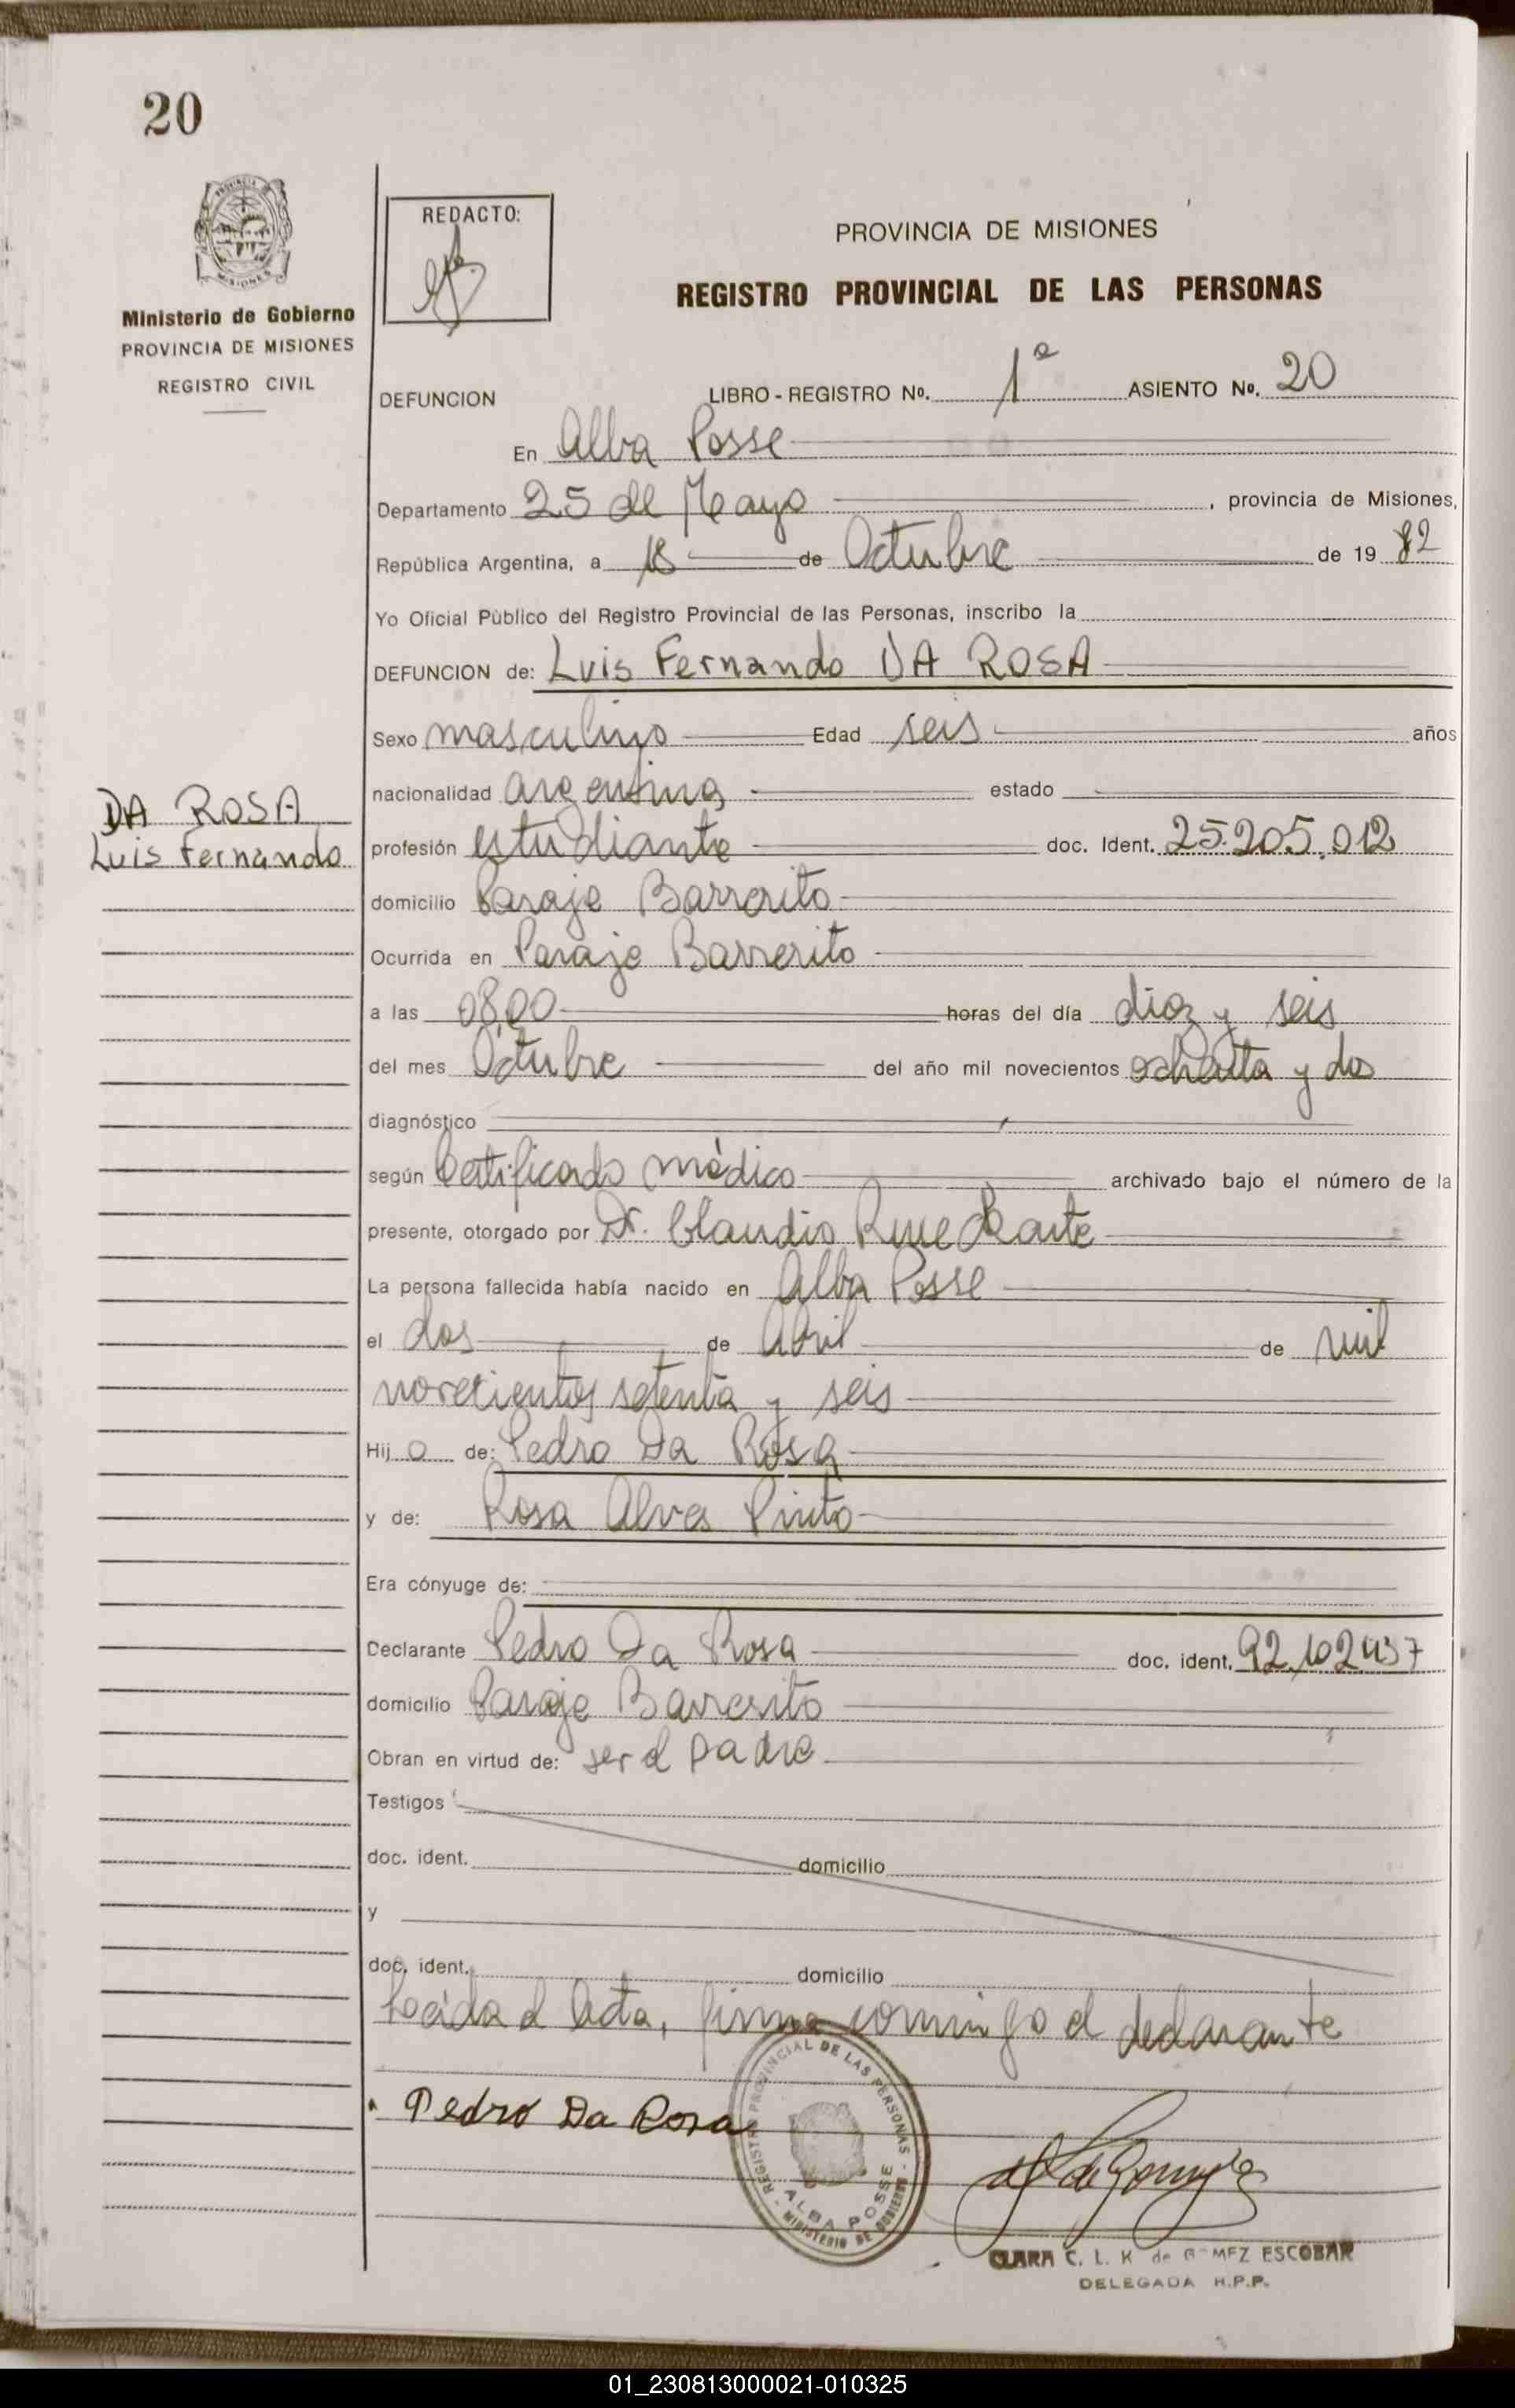 20
Ministerio de Gobierno
PROVINCIA DE MISIONES
REGISTRO CIVIL
REDACTO:
PROVINCIA DE MISIONES
REGISTRO PROVINCIAL DE LAS PERSONAS
DEFUNCION LIBRO - REGISTRO Nº. 1º ASIENTO Nº. 20
En Alba Posse
Departamento 25 de Mayo, provincia de Misiones,
República Argentina, a 18 de Octubre de 19 82
Yo Oficial Público del Registro Provincial de las Personas, inscribo la
DEFUNCION de: Luis Fernando DA ROSA
Sexo masculino Edad seis años
nacionalidad argentina estado
DA ROSA
Luis Fernando
profesión estudiante doc. Ident. 25.205.012
domicilio Paraje Barrerito
Ocurrida en Paraje Barrerito
a las 08,00 horas del día diez y seis
del mes Octubre del año mil novecientos ochenta y dos
diagnóstico
según Certificado médico archivado bajo el número de la
presente, otorgado por Dr. Claudio
La persona fallecida había nacido en Alba Posse
el dos de Abril de mil
novecientos setenta y seis
Hij o de: Pedro Da Rosa
y de: Rosa Alves Pinto
Era cónyuge de:
Declarante Pedro Da Rosa doc. ident. 92.102.437
domicilio Paraje Barrerito
Obran en virtud de: ser el padre
Testigos
doc. ident. domicilio
y
doc. ident. domicilio
Leída el Acta, firma conmigo el declarante
Pedro Da Rosa
REGISTRO PROVINCIAL DE LAS PERSONAS - MINISTERIO DE GOBIERNO -
ALBA POSSE
CLARA C. L. K de GOMEZ ESCOBAR
DELEGADA R.P.P.
01_230813000021-010325